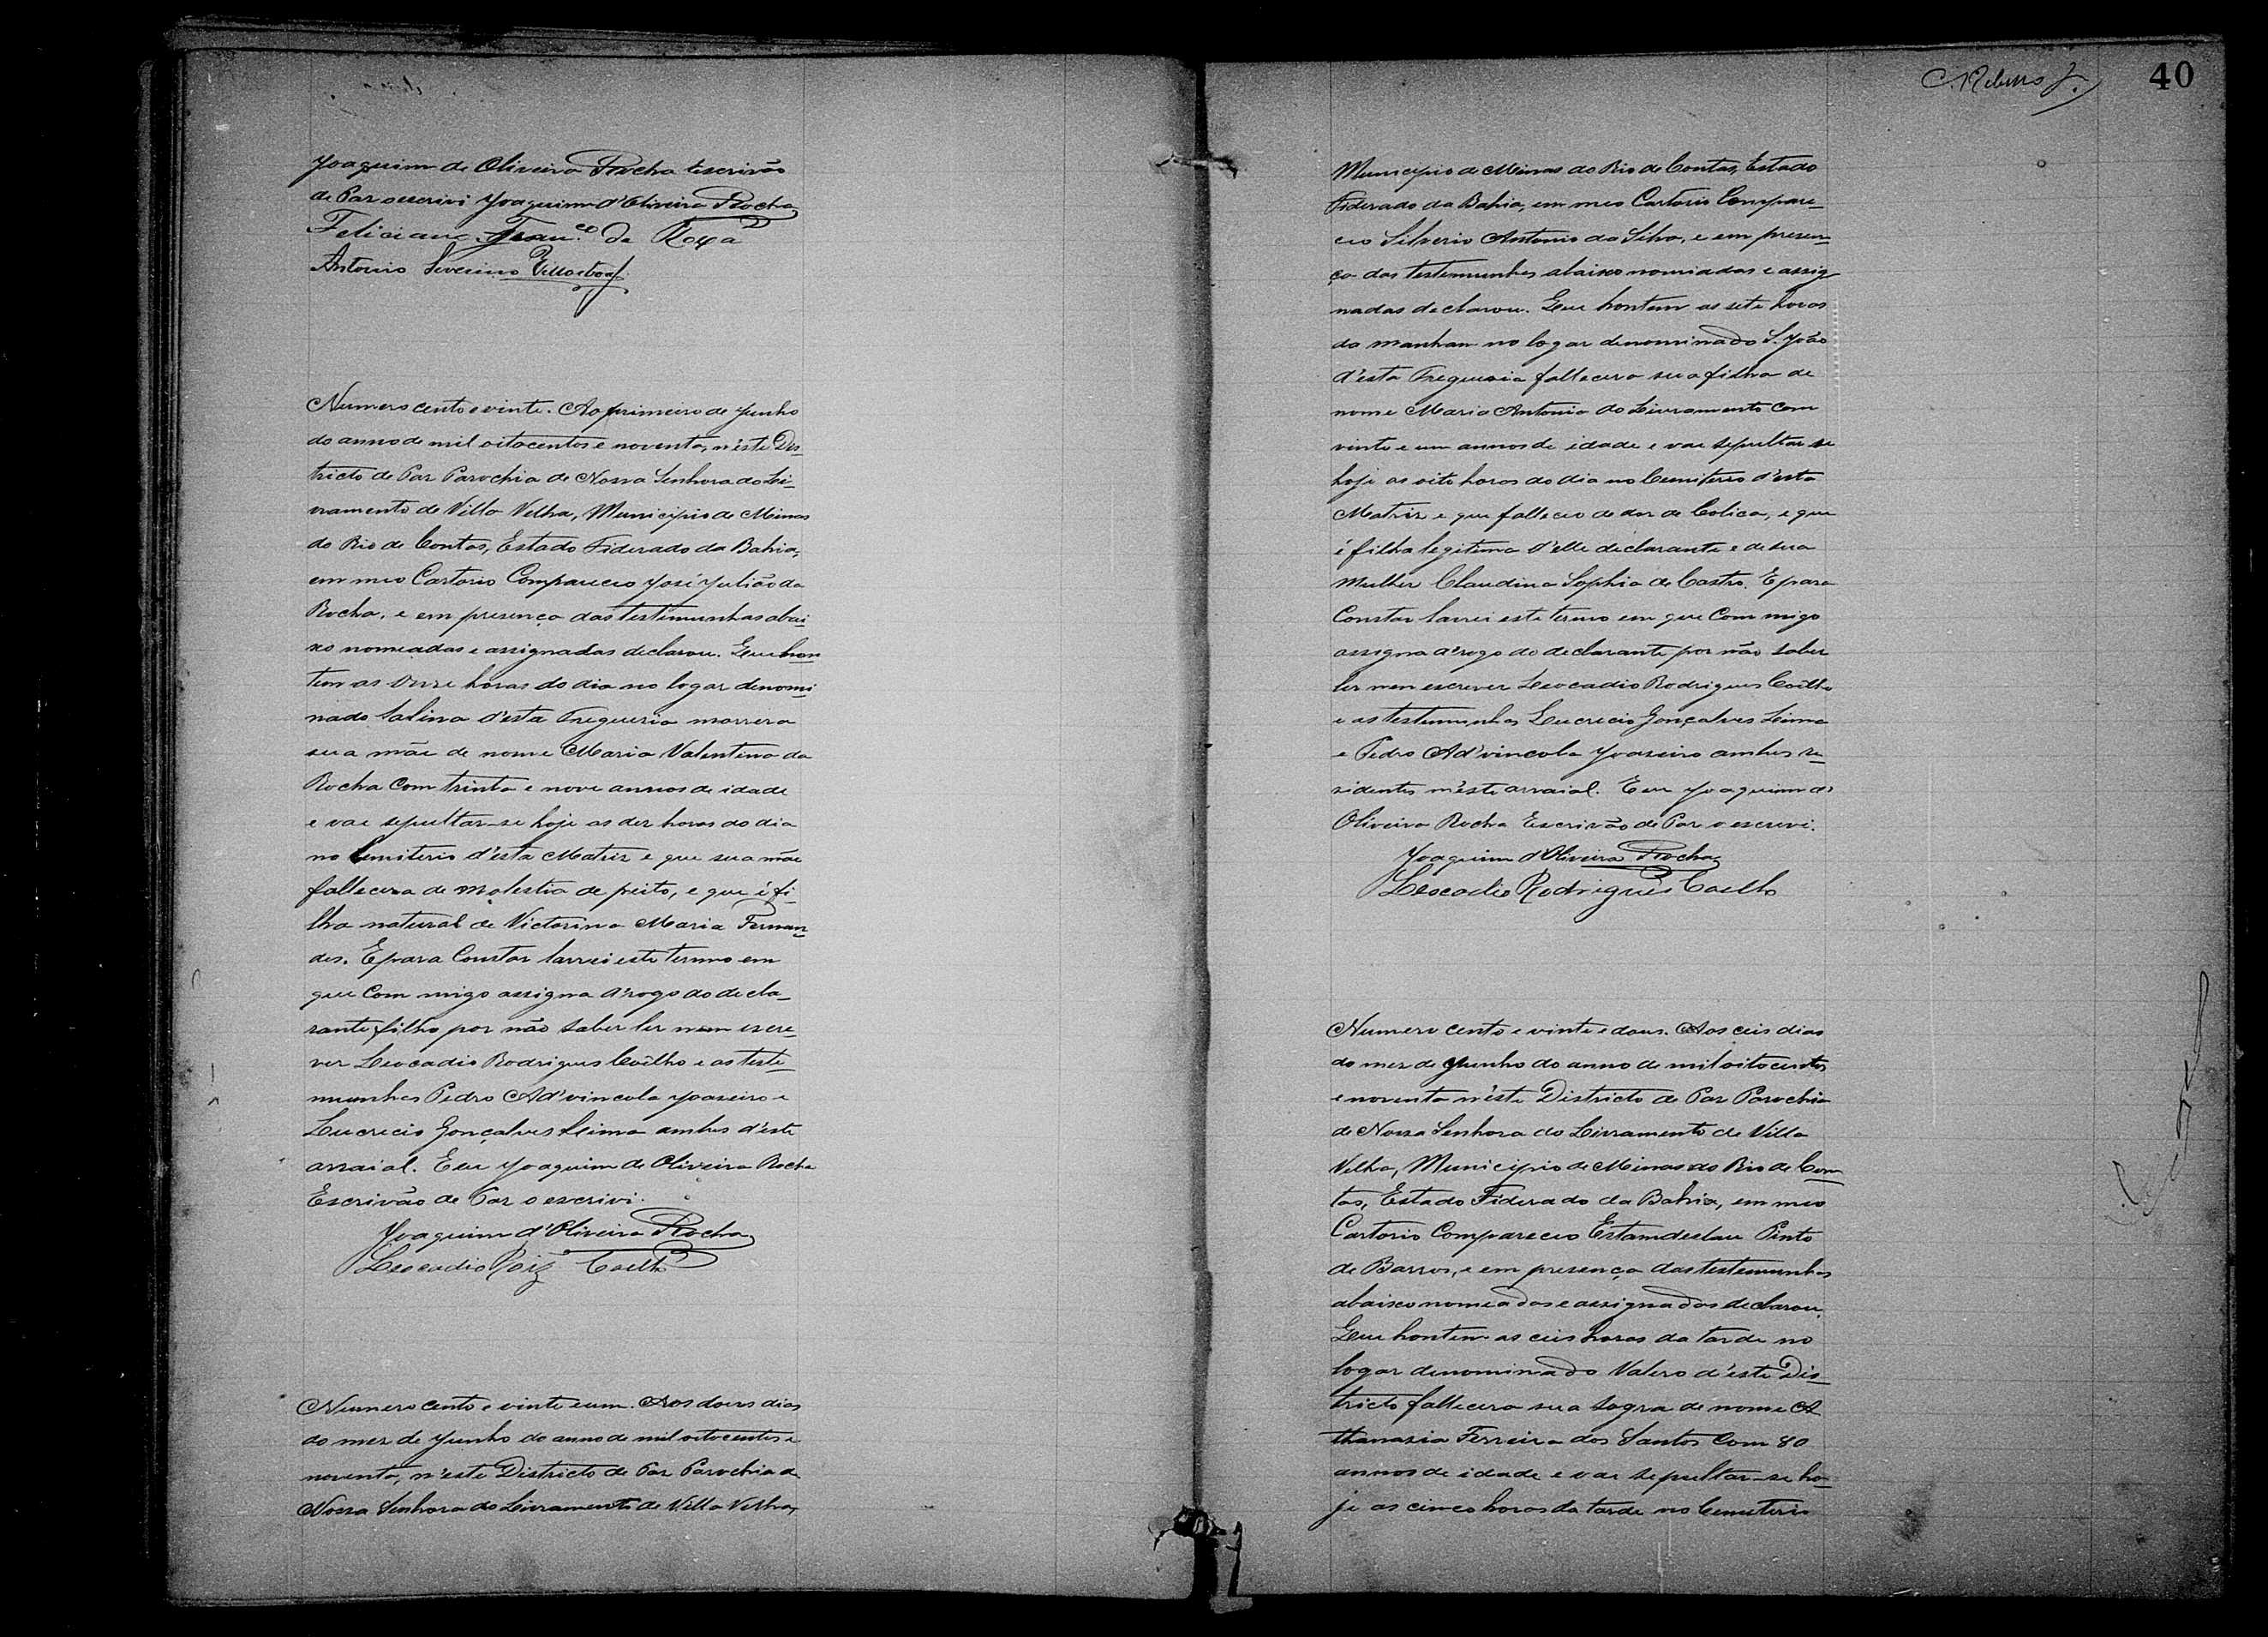 Joaquim de Oliveira Rocha Escrivão
de Paz o escrivi Joaquim d'Oliveira Rocha
Feliciano Fran.co da Roxa
Antonio Severino Villasboas
Numero cento e vinte. Ao primeiro de Junho
do anno de mil oitocentos e noventa, n'éste Des-
tricto de Paz Parochia de Nossa Senhora do Li-
vramento de Villa Velha, Municipio de Minas
do Rio de Contas, Estado Fiderado da Bahia,
em meo Cartorio Compareceo José Julião da
Rocha, e em presença das testimunhas abai-
xo nomeadas e assignadas declarou. Que hon
tem as onze horas do dia no logar denomi
nado Salina d'ésta Freguezia morrera
sua mãe de nome Maria Valentina da
Rocha Com trinta e nove annos de idade
e vae sepultar-se hoje as dez horas do dia
no Cemiterio d'ésta Matriz e que sua mãe
fallecera de molestia de peito, e que é fi-
lha natural de Victorina Maria Fernan-
des. E para Constar lavrei este termo em
que Com migo assigna a'rogo do decla-
rante filho por não saber ler nem escre-
ver Leocadio Rodrigues Coêlho e as teste-
munhas Pedro Ad'vincola Joazeiro e
Lucrecio Gonçalves Leima ambos d'este
arraial. Eeu Joaquim de Oliveira Rocha
Escrivão de Paz o escrivi.
Joaquim d'Oliveira Rocha
Leocadio Roiz Coelho
Numero cento e vinte e um. Aos dous dias
do mez de Junho do anno de mil oitocentos e
noventa, n'éste Districto de Paz Parochia de
Nossa Senhora do Livramento de Villa Velha,
40
Municipio de Minas do Rio de Contas, Estado
Fiderado da Bahia, em meo Cartorio Compare-
ceo Silverio Antonio da Silva, e em presen-
ça das testemunhas abaixo nomiadas e assig-
nadas declarou. Que hontem as sete horas
da manhan no logar denominado S. João
d'ésta Freguezia fallecera sua filha de
nome Maria Antonia do Livramento Com
vinte e um annos de idade e vae sepultar se
hoje as oito horas do dia no Cemiterio d'ésta
Matriz e que falleceo de dor de Colica, e que
é filha legitima d'elle declarante e de sua
Mulher Claudina Sophia de Castro. E para
Constar lavrei este termo em que Com migo
assigna a'rogo do declarante por não saber
ler nem escrever Leocadio Rodrigues Coêlho
e as testemunhas Lucrecio Gonçalves Leima
e Pedro Ad'vincola Joazeiro ambos re-
sidentes n'éste arraial. Eeu Joaquim de
Oliveira Rocha Escrivão de Paz o escrevi.
Joaquim d'Oliveira Rocha
Leocadio Rodrigues Coelho
Numero cento e vinte e dous. Aos ceis dias
do mez de Junho do anno de mil oitocentos
e noventa n'éste Districto de Paz Parochia
de Nossa Senhora do Livramento de Villa
Velha, Municipio de Minas do Rio de Con-
tas, Estado Fiderado da Bahia, em meo
Cartorio Compareceo Estandeslau Pinto
de Barros, e em presença das testemunhas
abaixo nomeadas e assignadas declarou.
Que hontem as ceis horas da tarde no
logar denominado Valero d'éste Dis-
tricto fallecera sua sogra de nome A
thanazia Ferreira dos Santos Com 80
annos de idade e vae sepultar-se ho-
je as cinco horas da tarde no Cemeterio